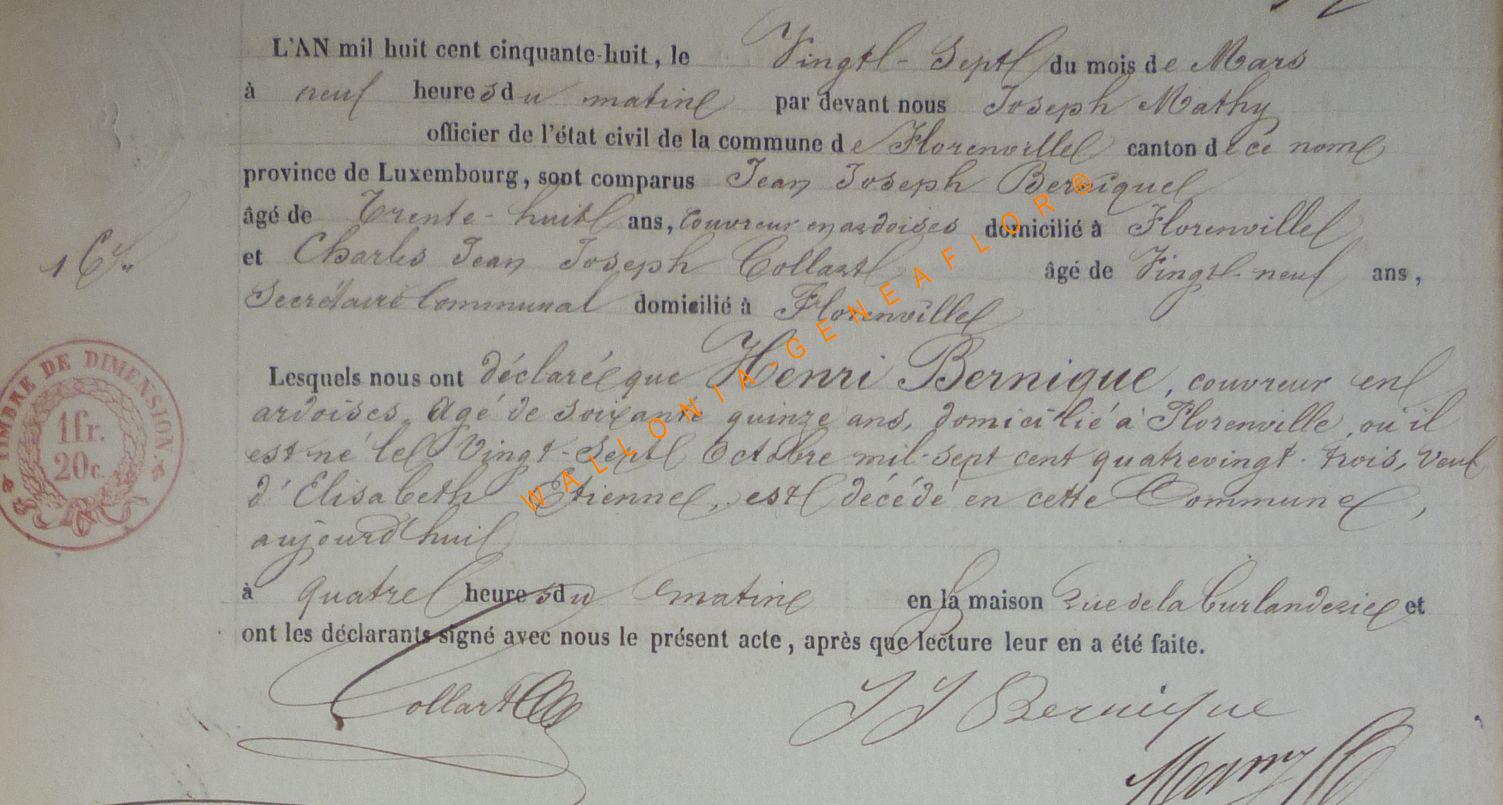 L'AN mil huit cent cinquante-huit, le Vingt-Sept du mois de Mars
à neuf heures du matin par devant nous Joseph Mathy
officier de l'état civil de la commune de Florenville canton de ce nom
province de Luxembourg, sont comparus Jean Joseph Bernique
âgé de Trente-huit ans, couvreur en ardoises domicilié à Florenville
et Charles Jean Joseph Collart âgé de Vingt-neuf ans,
Secrétaire Communal domicilié à Florenville
Lesquels nous ont déclaré que Henri Bernique, couvreur en
ardoises, âgé de soixante quinze ans, domicilié à Florenville, où il
est né le Vingt-Sept Octobre mil-sept cent quatrevingt-trois, Veuf
d'Elisabeth Etienne, est décédé en cette Commune,
aujourd'hui
à quatre heures du matin en la maison Rue de la Curlanderie et
ont les déclarants signé avec nous le présent acte, après que lecture leur en a été faite.
Collart
J J Bernique
TIMBRE DE DIMENSION.
1fr.
20c.
WALLONIA-GENEAFLOR®